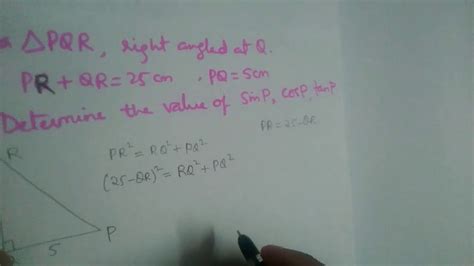 △PQR, right angled at Q.
PR + QR = 25 cm , PQ = 5cm
Determine the value of sin P, cos P, tan P
PR = 25 - QR
PR² = RQ² + PQ²
(25 - QR)² = RQ² + PQ²
R
P
5